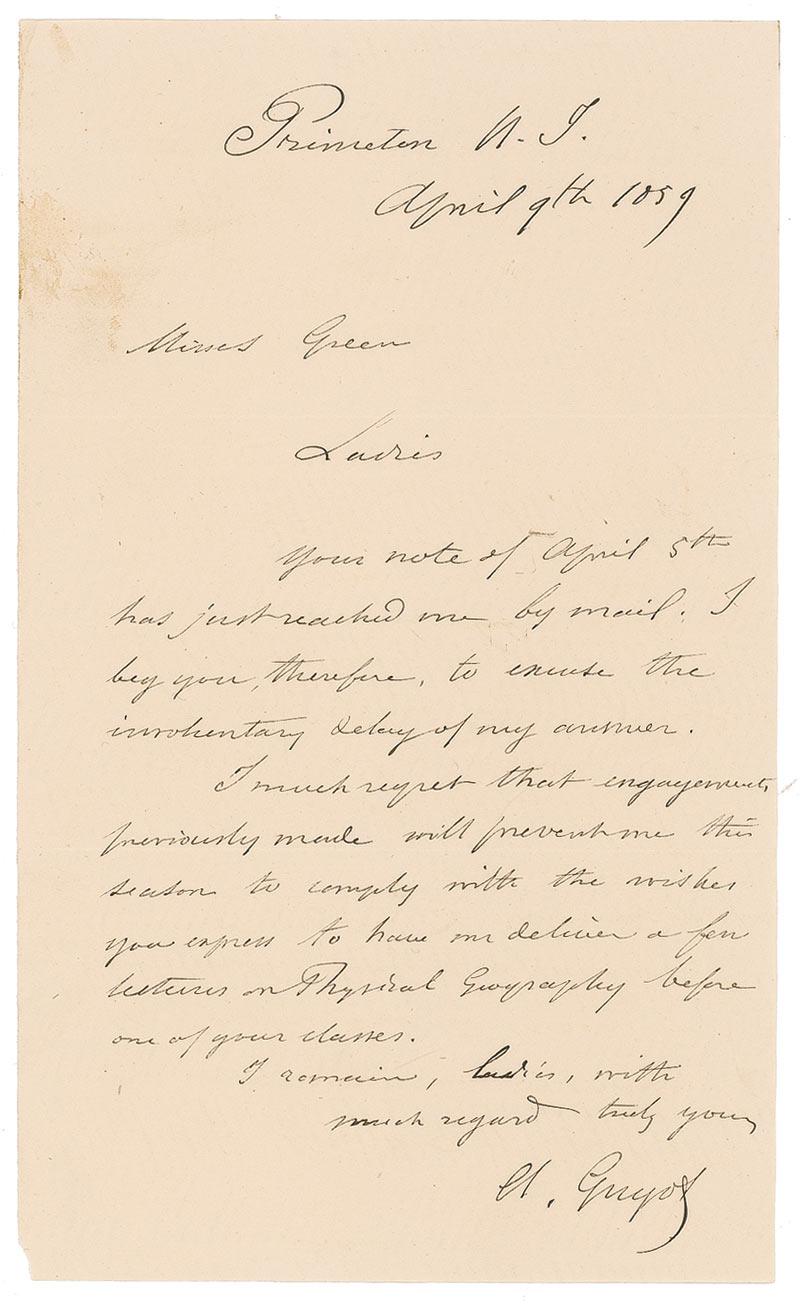 Princeton N. J.
April 9th 1859
Misses Green
Ladies
Your note of April 5th
has just reached me by mail. I
beg you, therefore, to excuse the
involuntary delay of my answer.
I much regret that engagements
previously made will prevent me this
season to comply with the wishes
you express to have me deliver a few
lectures on Physical Geography before
one of your classes.
I remain, ladies, with
much regard truly yours
A. Guyot